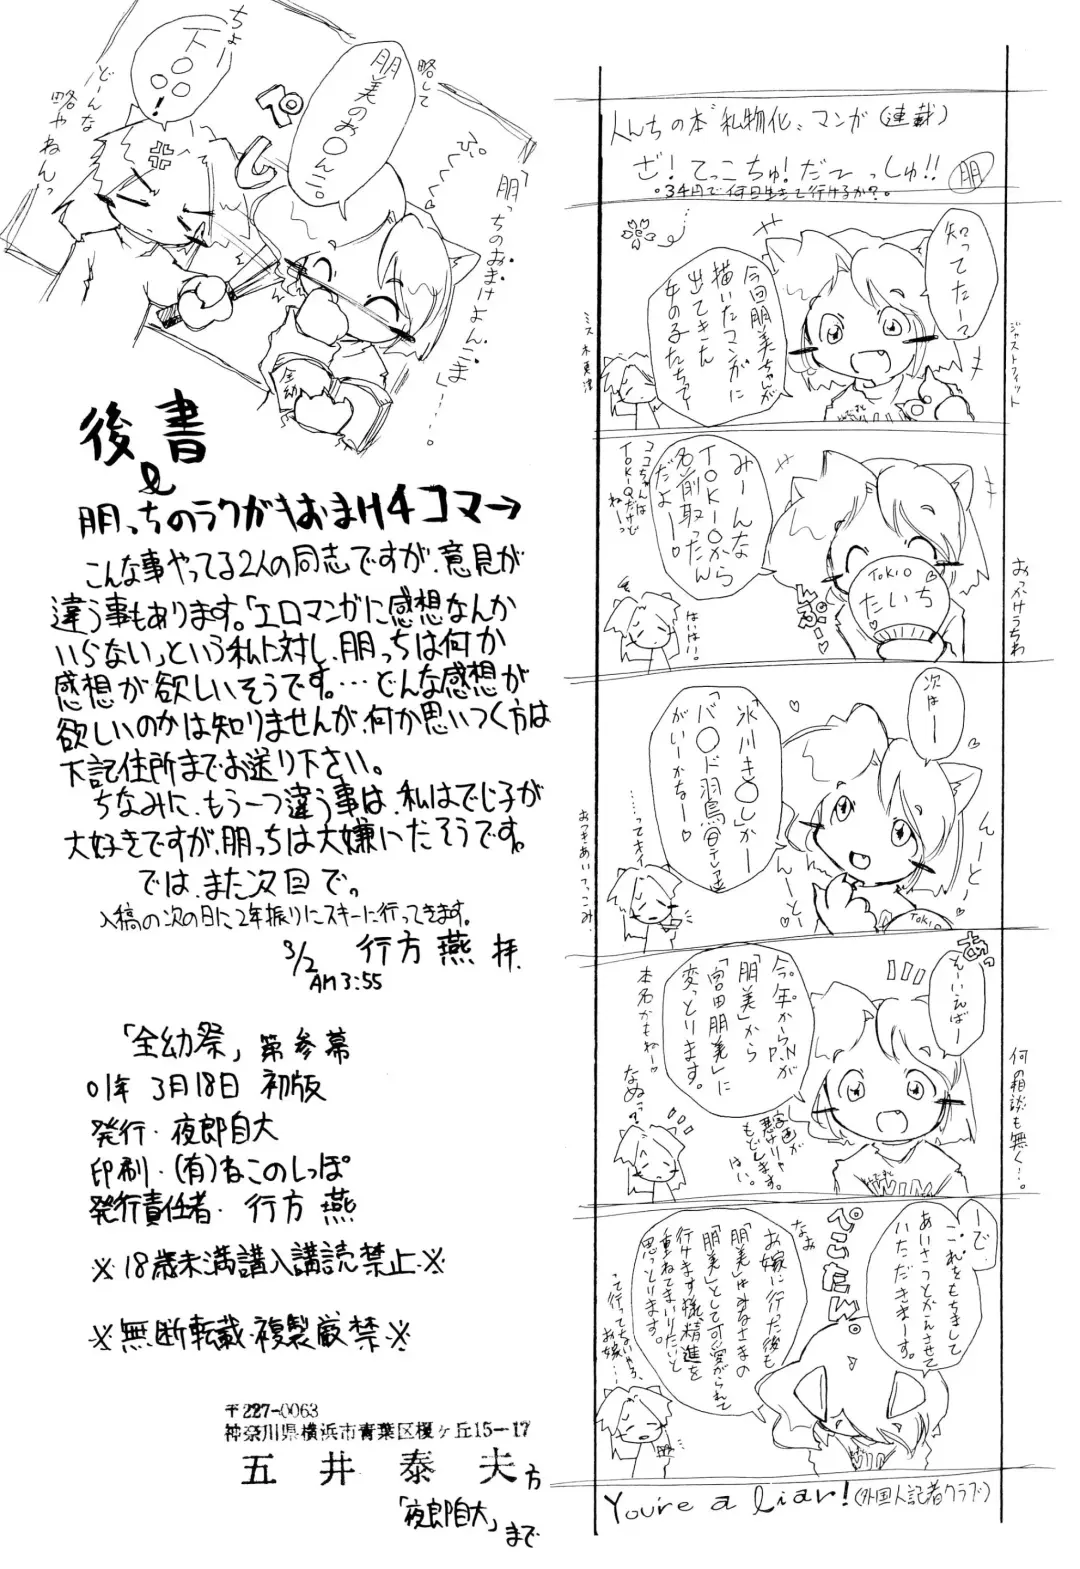 ちょー
下〇〇〇!
どーんな
略やねんっ
略して
朋美のお〇んこ。
ぺし
ぷくくく
「朋っちのおまけよんこま」…。
全幼
後書
&
朋っちのラクガキおまけ4コマ→
こんな事やってる2人の同志ですが、意見が
違う事もあります。「エロマンガに感想なんか
いらない」という私に対し、朋っちは何か
感想が欲しいそうです。…どんな感想が
欲しいのかは知りませんが、何か思いつく方は
下記住所までお送り下さい。
ちなみに、もう一つ違う事は、私はでじ子が
大好きですが、朋っちは大嫌いだそうです。
では、また次回で。
入稿の次の日に2年振りにスキーに行ってきます。
3/2 行方 燕 拝.
AM3:55
「全幼祭」第参幕
01年 3月18日 初版
発行・夜郎自大
印刷・(有)ねこのしっぽ
発行責任者・行方 燕
※18歳未満購入講読禁止※
※無断転載・複製厳禁※
〒227-0063
神奈川県横浜市青葉区榎ヶ丘15-17
五井泰夫方
「夜郎自大」まで
人んちの本"私物化"マンガ(連載)
ざ!てっこちゅ!だてっしゅ!!
朋
。34円で何日生きて行けるか?。
知ってたー?
今回朋美ちゃんが
描いたマンガに
出てきた
女の子たちってー
ミス木更津
ジャストフィット
みーんな
TOKIOから
名前取ったんだよー
ココちゃんは
TOKIOだけどねーっ
TOKIO
たいち
はいはい。
おっかけうちわ
次はー
「氷川き〇し」かー
「バ〇ド羽鳥@テレ東」
がいーかなー♡
んーとー
んーとー
…ってオイ
おつきあいてっこみ.
TOKIO
あっ
そーいえばー
今年からP.Nが
「朋美」から
「宮田朋美」に
変っとります。
本名かもねー
字画が
悪けりゃ
もどします。
はい。
なぬっ?
何の相談も無く…。
ーで、
これをもちまして
あいさつとかえさせて
いただきまーす。
ぺこたん。
なお
お嫁に行った後も
「朋美」はみなさまの
「朋美」として可愛がられて
行けます様精進を
重ねてまいりたいと
思っとります。
って行ってないやろ、
お嫁…
You're a liar!(外国人記者クラブ)